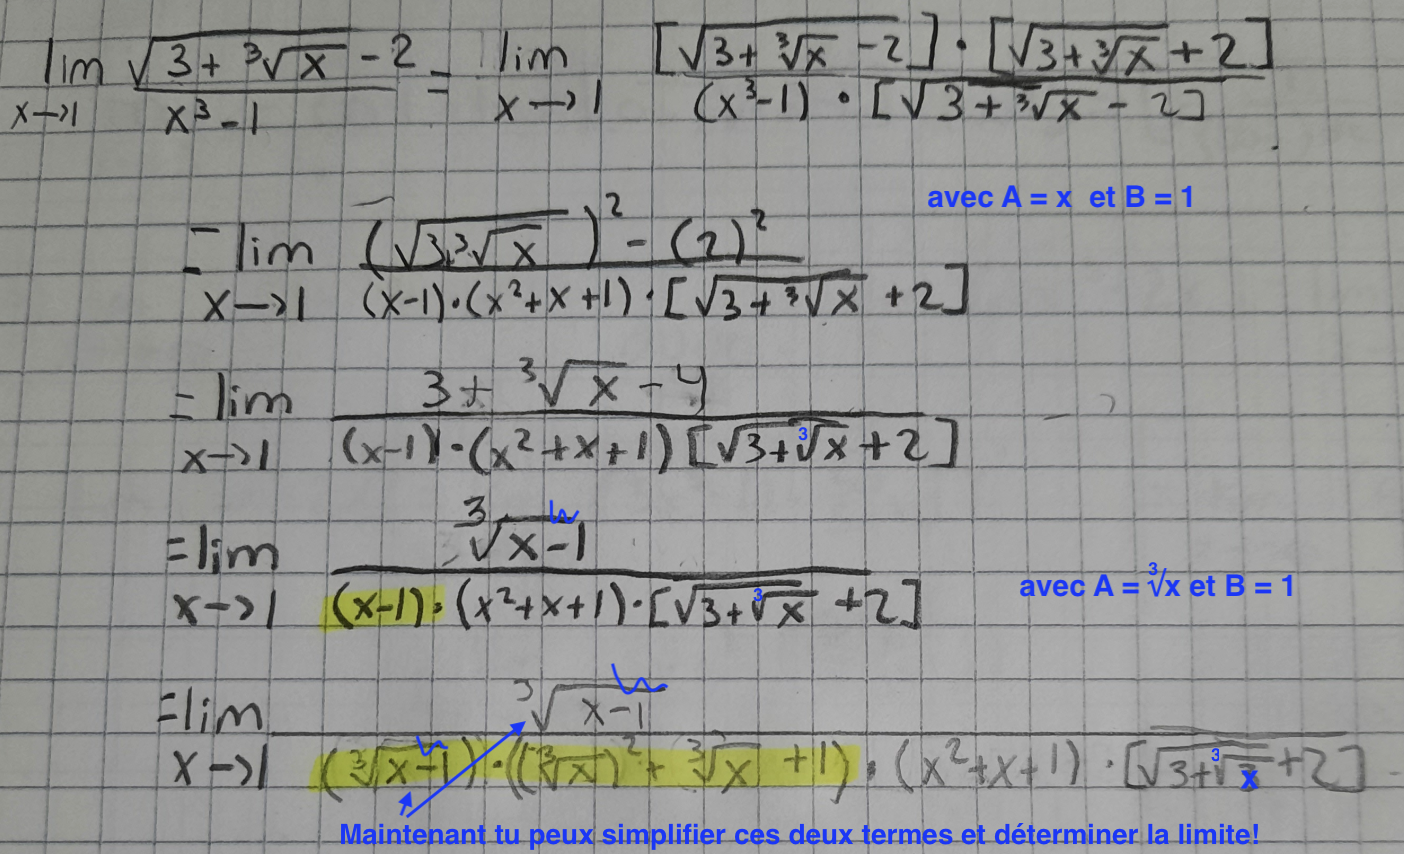 lim x→1 (√(3 + ∛x) - 2) / (x³ - 1) = lim x→1 ([√(3 + ∛x) - 2] · [√(3 + ∛x) + 2]) / ((x³ - 1) · [√(3 + ∛x) - 2])
avec A = x et B = 1
= lim x→1 ((√(3+∛x))² - (2)²) / ((x-1)·(x²+x+1)·[√(3+∛x) + 2])
= lim x→1 (3 + ∛x - 4) / ((x-1)·(x²+x+1)[√(3+∛x) + 2])
= lim x→1 (∛x - 1) / ((x-1)·(x²+x+1)·[√(3+∛x) + 2])
avec A = ∛x et B = 1
= lim x→1 (∛x - 1) / ((∛x - 1)·((∛x)² + ∛x + 1)·(x²+x+1)·[√(3+∛x) + 2])
Maintenant tu peux simplifier ces deux termes et déterminer la limite!